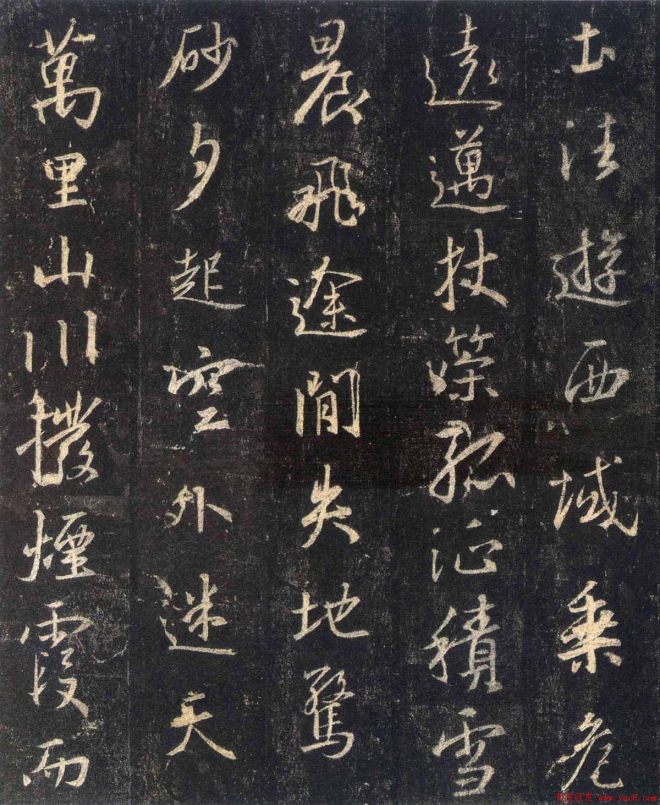 土往遊西域乘危
遠邁杖策孤征積雪
晨飛途間失地驚
砂夕起空外迷天
萬里山川撥煙霞而
www.yac8.com